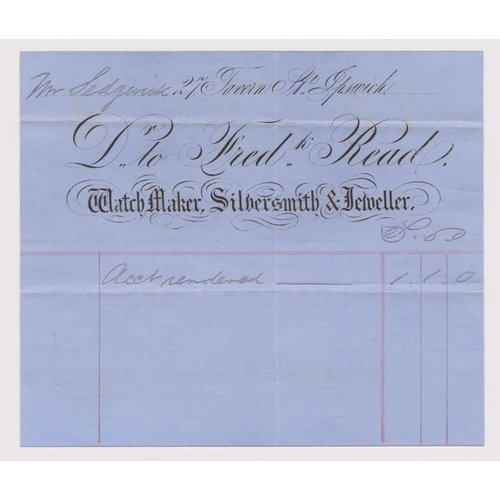 Mr Sedgwick 27, Tavern St. Ipswich.
Dr. to Fredk. Read.
Watch Maker, Silversmith & Jeweller.
£ s d
Acct rendered 1 1 0